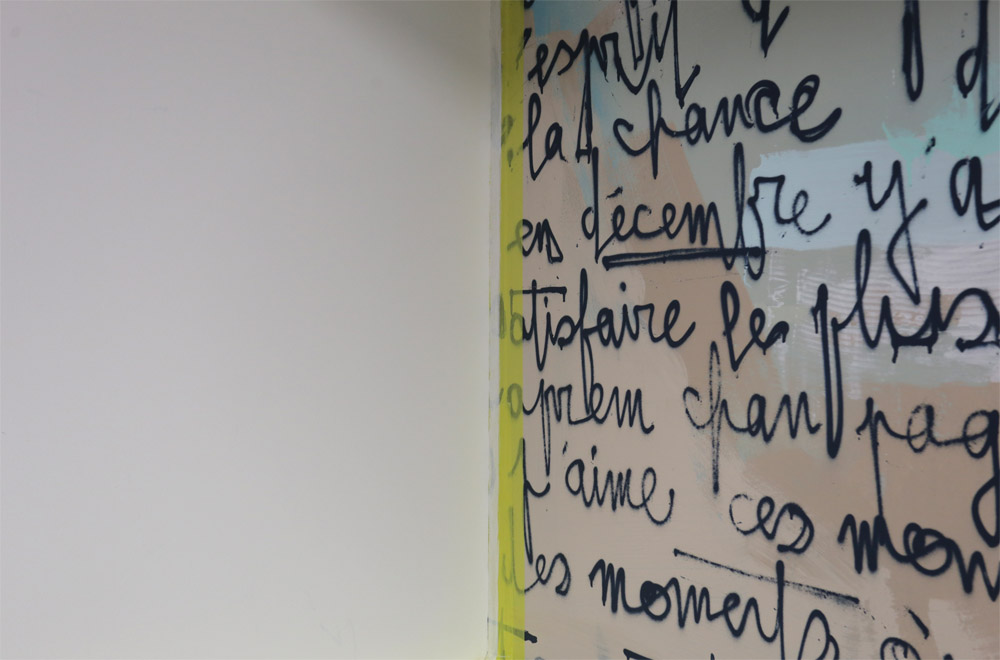 esprit q
la chance
en décembre y'a
satisfaire les plus
aprem chan pag
j'aime ces mom
des moments à